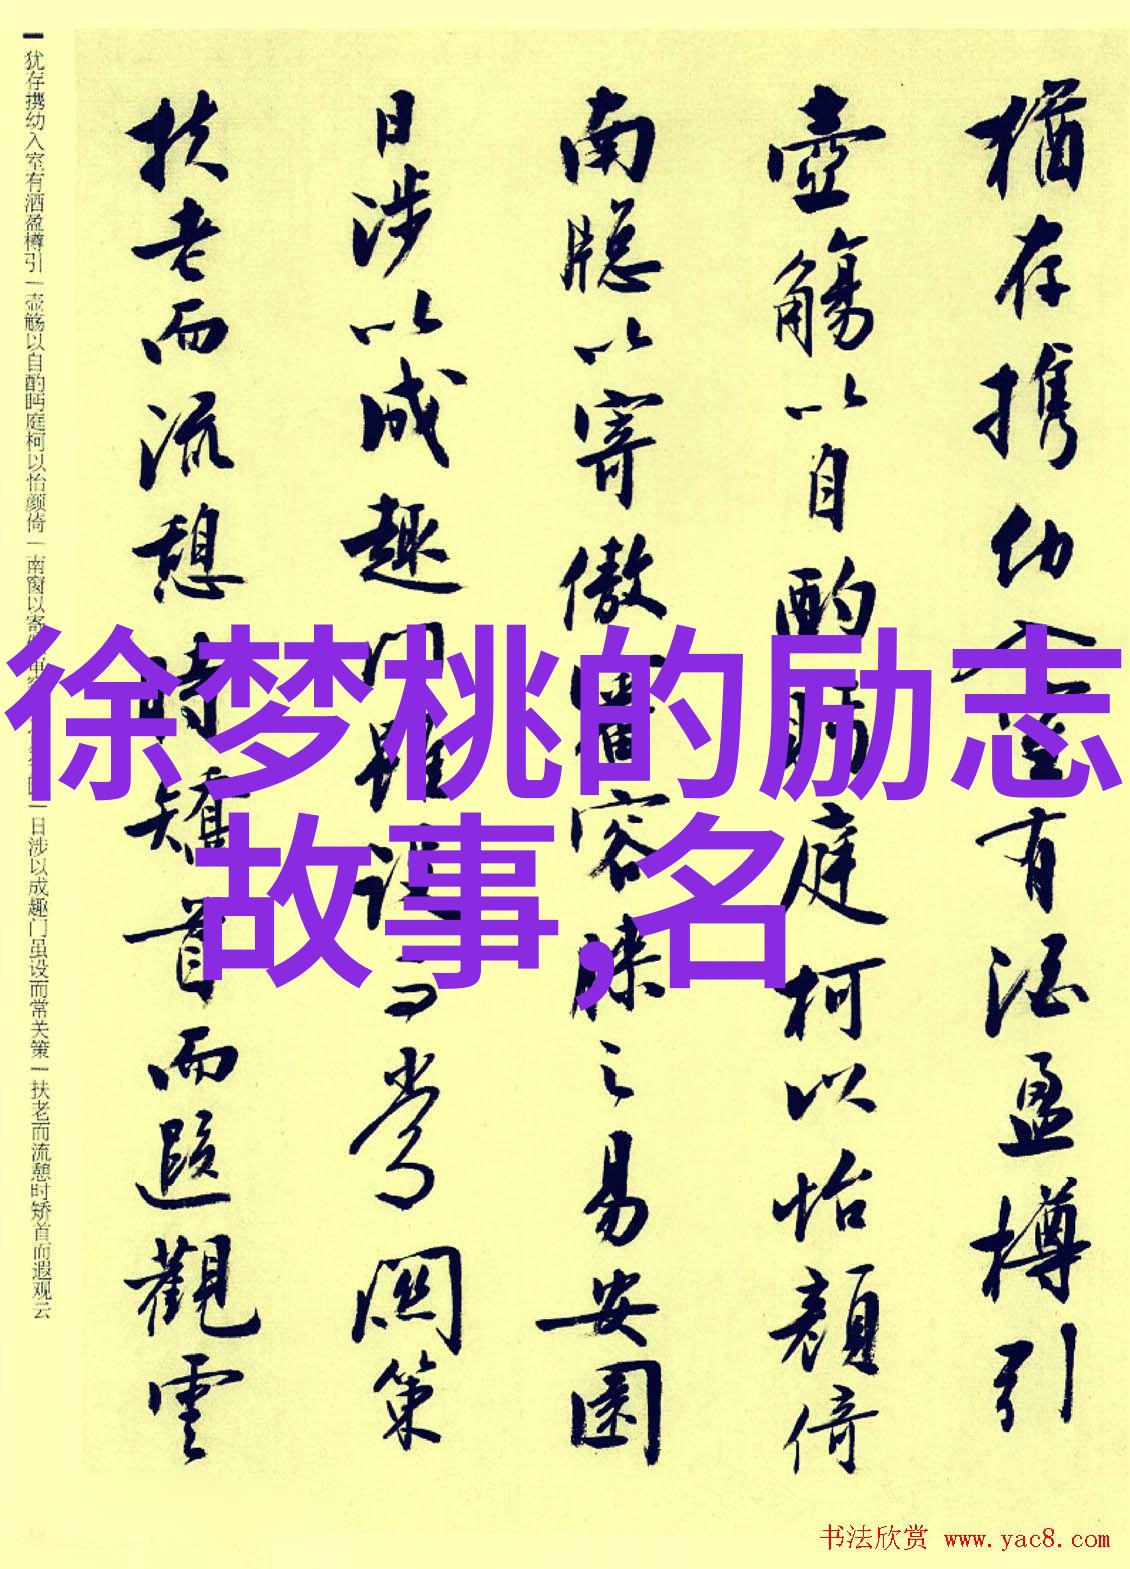 猶存携幼入室有酒盈樽引
壺觴以自酌眄庭柯以怡顔倚
南牕以寄傲審容膝之易安園
日涉以成趣門雖設而常関策
扶老而流憩時矯首而遐觀雲
犹存携幼入室有酒盈樽引|壶觞以自酌眄庭柯以怡颜倚|南窗以寄
日涉以成趣门虽设而常关策|扶老而流憩时矫首而遐观云
徐梦桃的励志
故事,名
书法欣赏 www.yac8.com